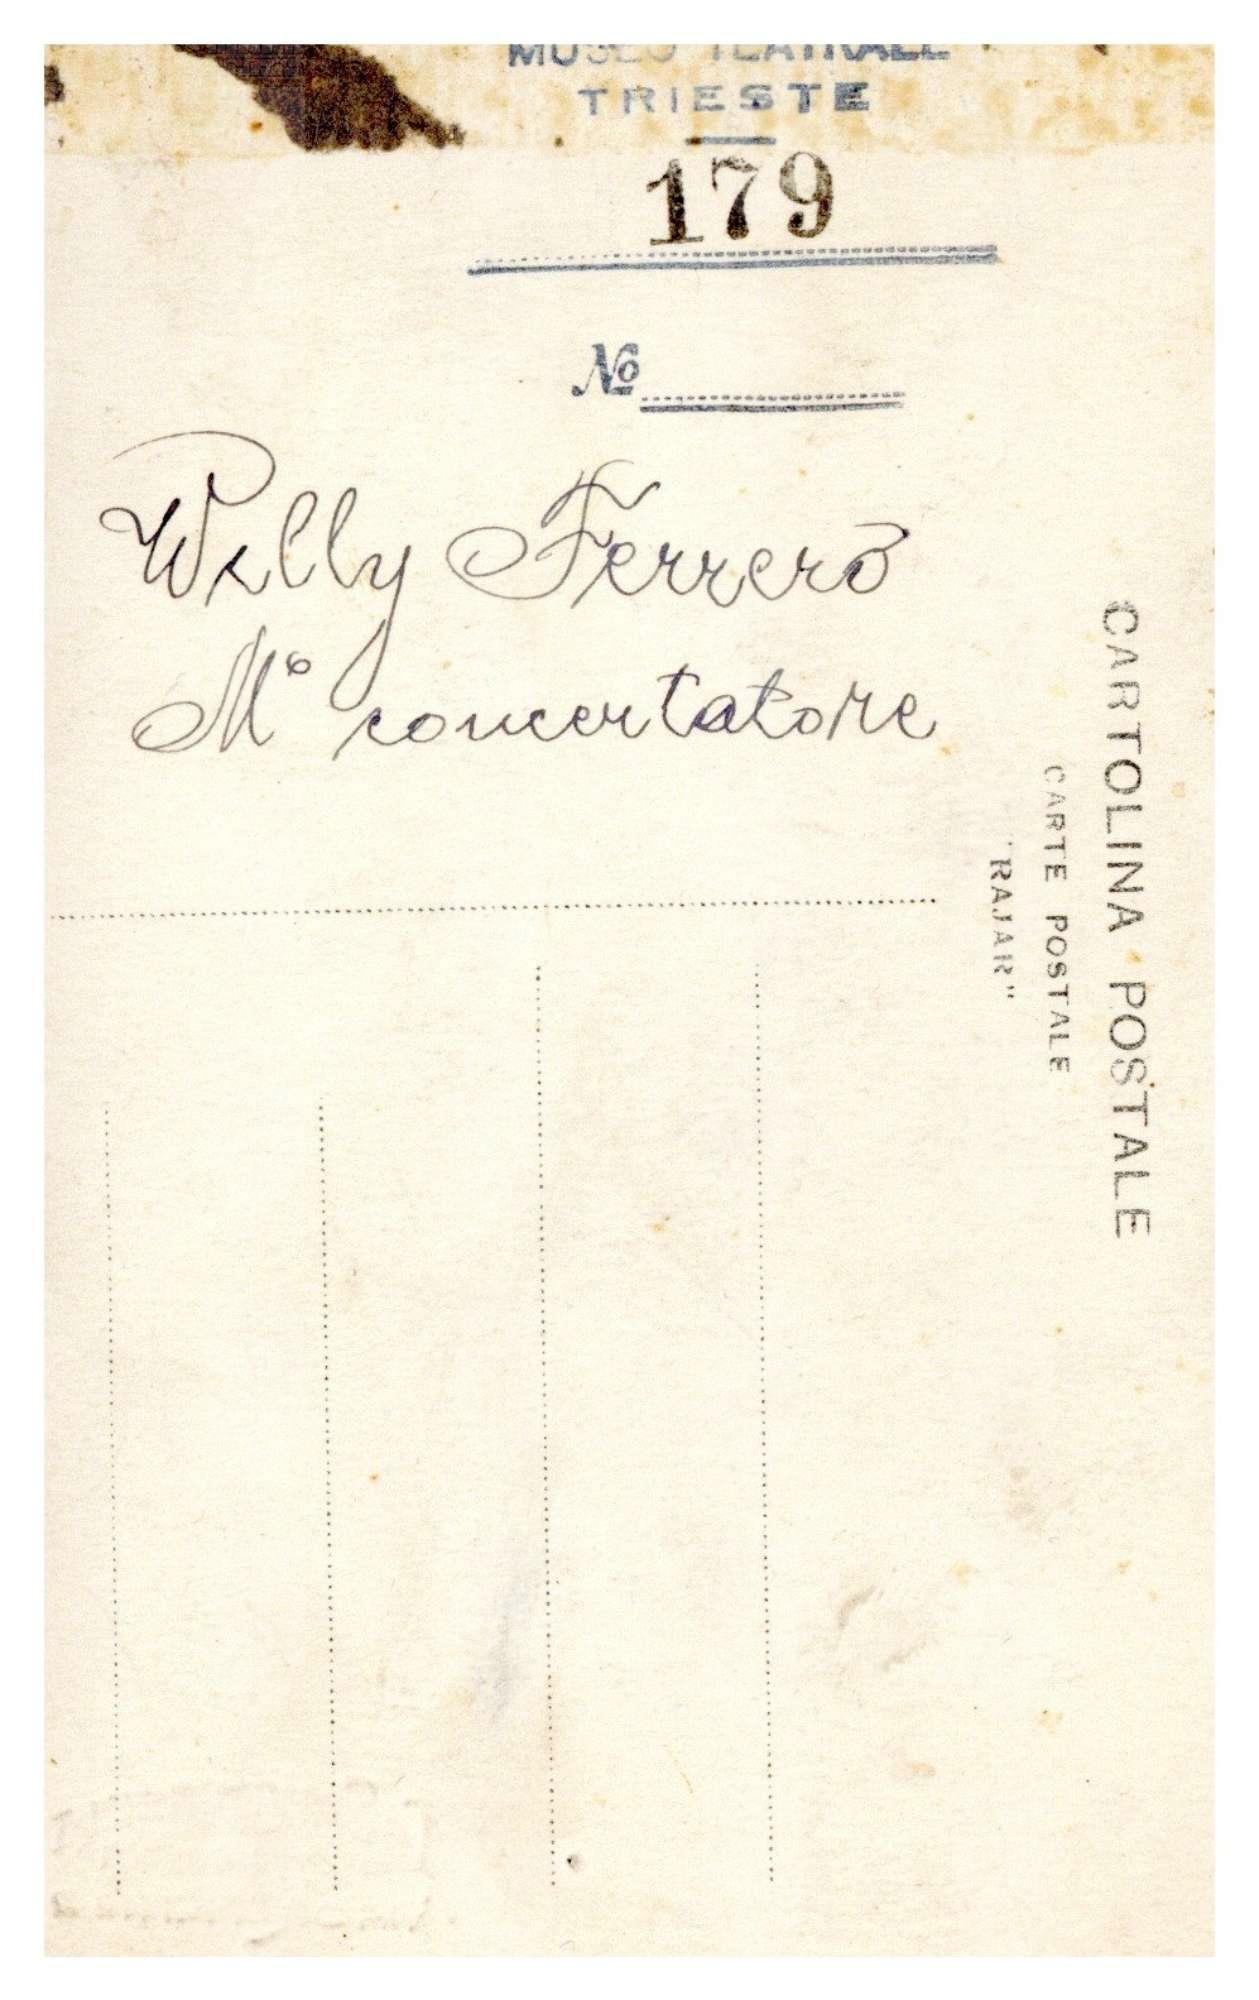 MUSEO TEATRALE
TRIESTE
179
№
Willy Ferrero
M° concertatore
CARTOLINA POSTALE
CARTE POSTALE
"RAJAR"